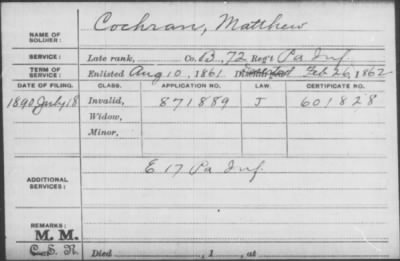 NAME OF SOLDIER: Cochran, Matthew
SERVICE: Late rank, Co. B. 72 Reg't Pa Inf.
TERM OF SERVICE: Enlisted Aug 10, 1861. Feb 26, 1862
DATE OF FILING. CLASS. APPLICATION NO. LAW. CERTIFICATE NO.
1890 July 18 Invalid, 871889 J 601828
Widow,
Minor,
ADDITIONAL SERVICES: E 17 Pa Inf.
REMARKS:
M. M.
C. S. N. Died , 1 , at